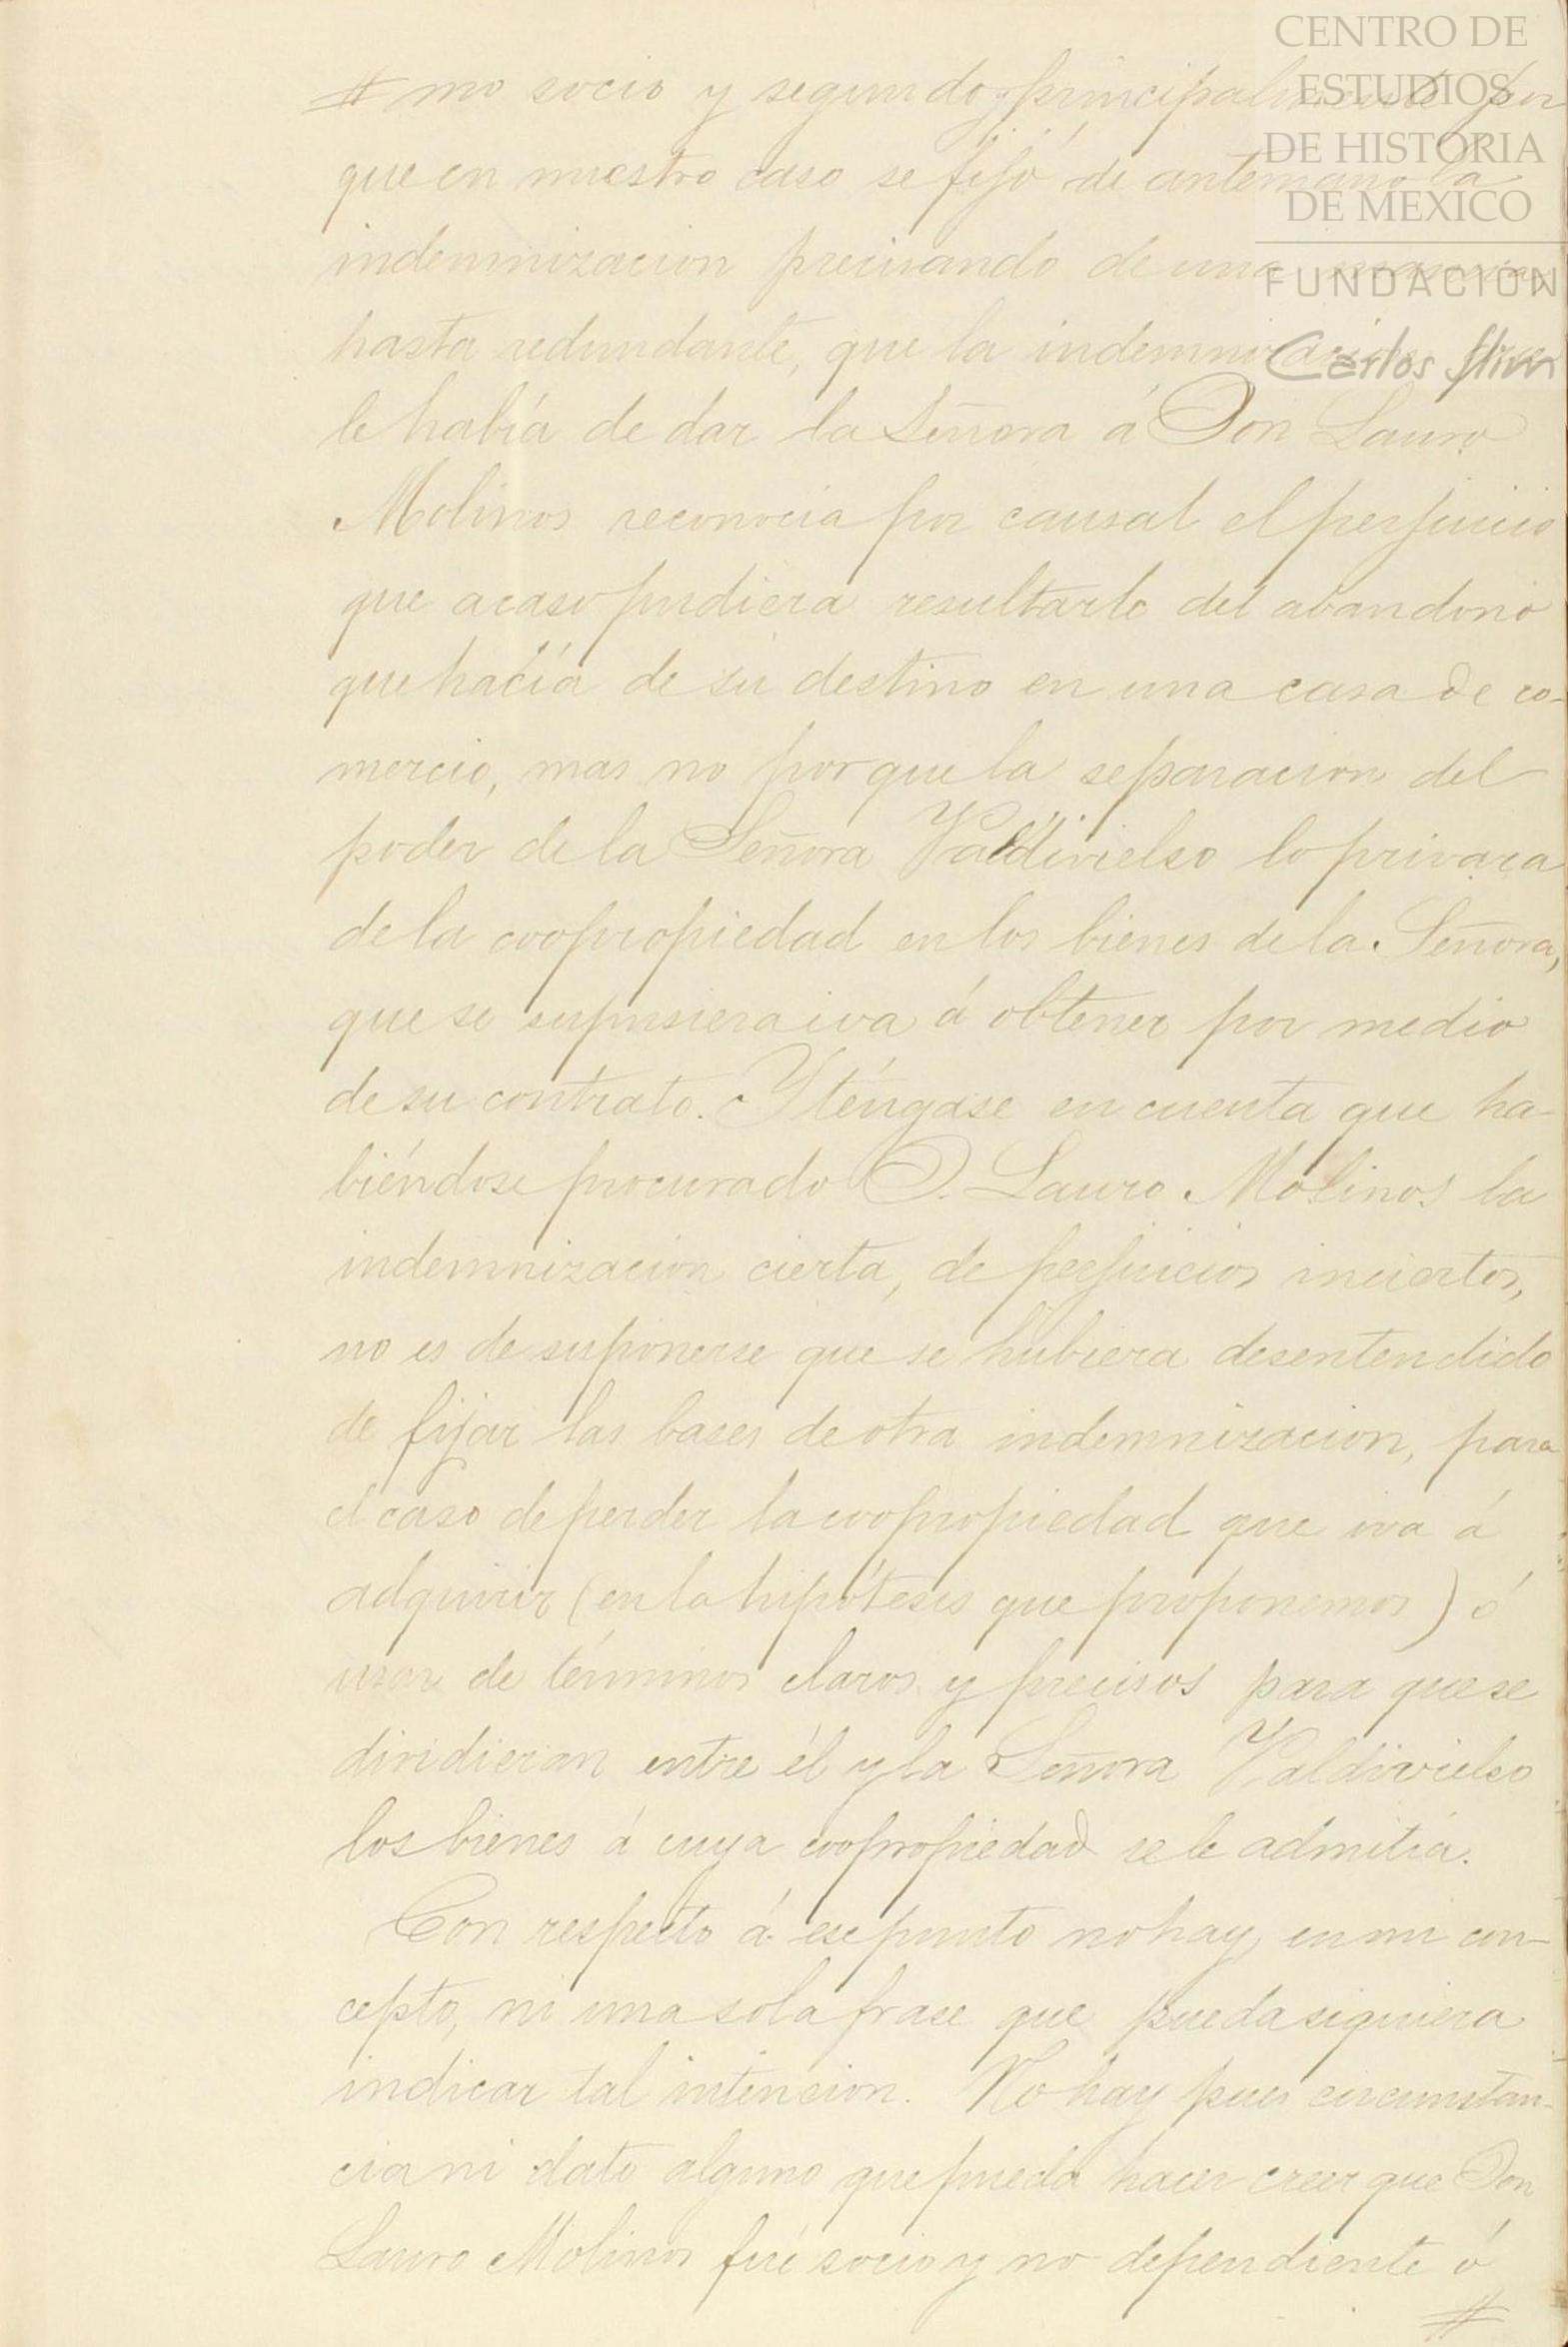 CENTRO DE
ESTUDIOS
DE HISTORIA
DE MEXICO
FUNDACIÓN
Carlos Slim
# mo socio y segundo y principalmente por
que en nuestro caso se fijó de antemano la
indemnizacion precisando de una manera
hasta redundante, que la indemnizacion que
le había de dar la Señora á Don Lauro
Molinos reconocia por causal el perjuicio
que acaso pudiera resultarle del abandono
que hacía de su destino en una casa de co-
mercio, mas no porque la separacion del
poder de la Señora Valdivielso lo privara
de la coopropiedad en los bienes de la Señora,
que se supusiera iva á obtener por medio
de su contrato. Y téngase en cuenta que ha-
biéndose procurado D. Lauro Molinos la
indemnizacion cierta, de perjuicios inciertos,
no es de suponerse que se hubiera desentendido
de fijar las bases de otra indemnizacion, para
el caso de perder la coopropiedad que iva á
adquirir (en la hipótesis que proponemos) ó
usar de términos claros y precisos para que se
dividieran entre él y la Señora Valdivielso
los bienes á cuya coopropiedad se le admitía.
Con respecto á ese punto no hay, en mi con-
cepto, ni una sola frase que pueda siquiera
indicar tal intencion. No hay pues circunstan-
cia ni dato alguno que pueda hacer creer que Don
Lauro Molinos fué socio y no dependiente ó
#